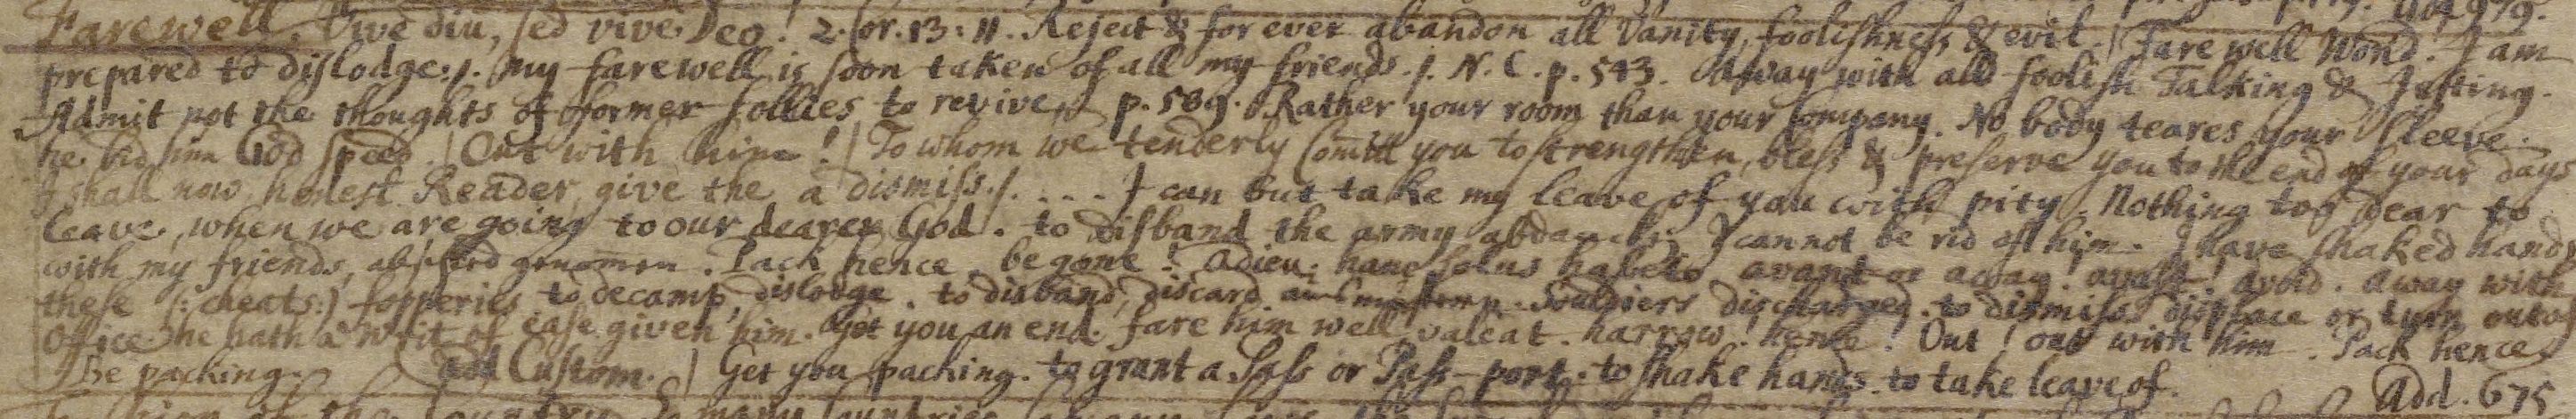 Farewell. Vive diu, sed vive Deo! 2. Cor. 13: 11. Reject & for ever abandon all Vanity, foolishness & evil. | Fare well Word. I am
prepared to dislodge:/. my farewell is soon taken of all my friends./. N. C. p. 543. away with all foolish Talking & Jesting.
Admit not the thoughts of former follies to revive, p. 589. Rather your room than your Company. No body teares your sleeve.
he bid him God speed. | Out with him! | To whom we tenderly Comitt you to strengthen, bless & preserve you to the end of your days
I shall now, honest Reader, give the a dismiss./. . . . I can but take my leave of you with pity. Nothing too dear to
leave, when we are going to our dearer God. to disband the army I cannot be rid of him. I have shaked hands
with my friends, Pack hence, be gone! adieu. solus habeto avant or away! avast! avoid. away with
these (: cheats:) fopperies to decamp, dislodge. to disband, discard Souldiers discharged. to dismiss displace or turn out of
Office he hath a Writ of ease given him. Get you an end. fare him well, valeat. harrow! hence! Out! out with him. Pack hence
be packing. add Custom. | Get you packing. to grant a Pass or Pass-port. to shake hands. to take leave of.
Add. 675